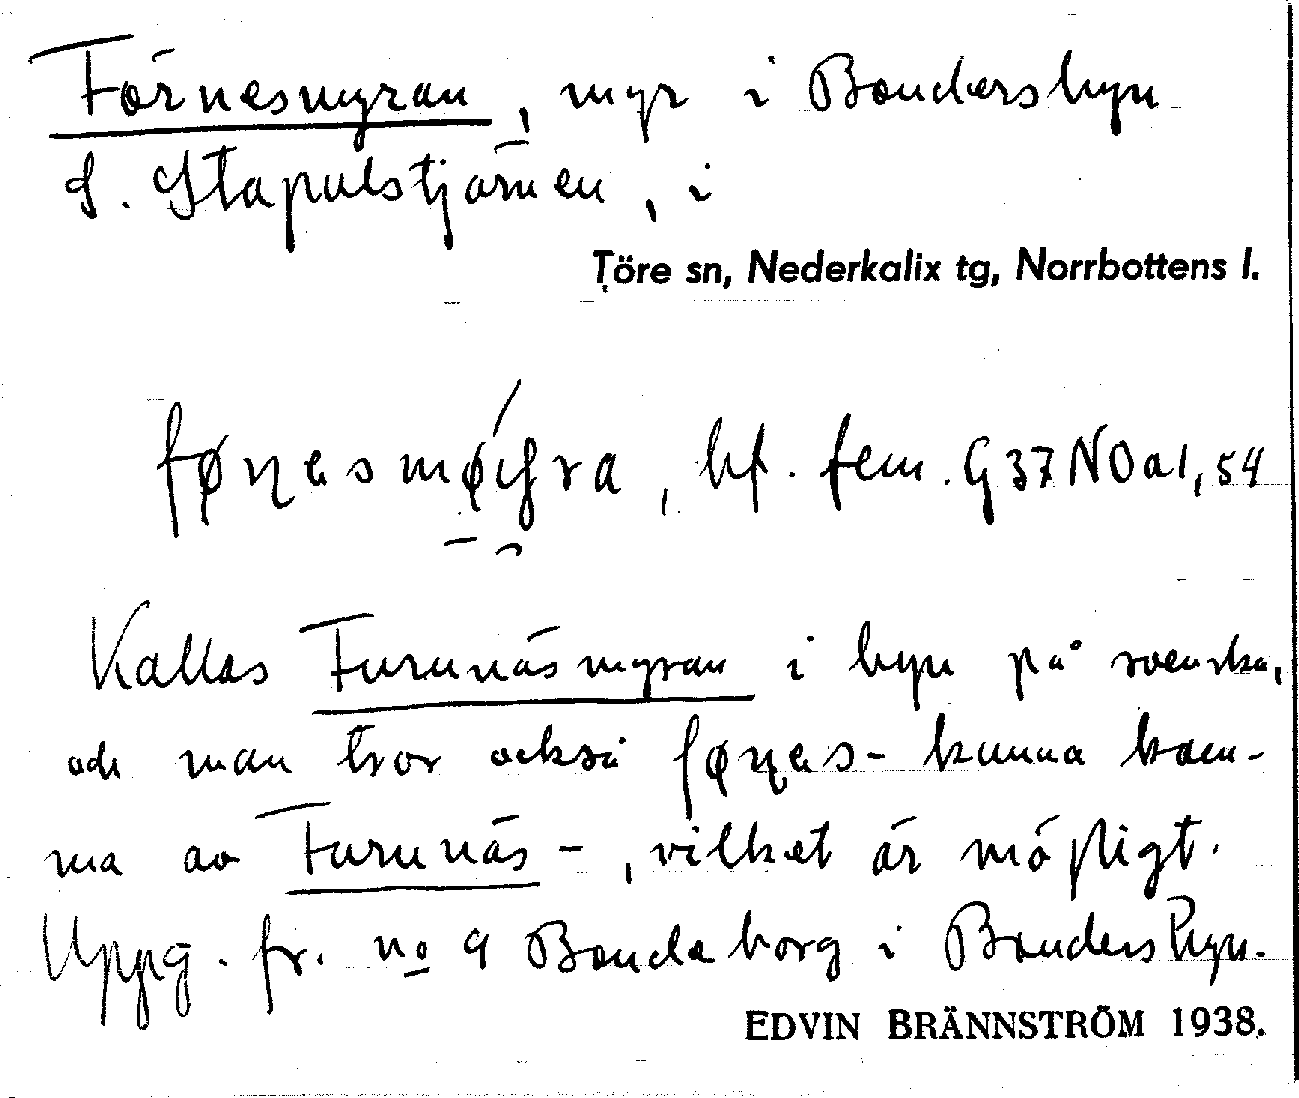 Förnesmyran, myr i Bondersbyn
S. Stapulstjärnen, i
Töre sn, Nederkalix tg, Norrbottens l.
bf. fem. G37NOa1,54
Kallas Furunäsmyran i byn på svenska,
och man tror också føṇes- kunna kom-
ma av Furunäs-, vilket är möjligt.
Uppg. fr. no 9 Bondeborg i Bondersbyn.
EDVIN BRÄNNSTRÖM 1938.